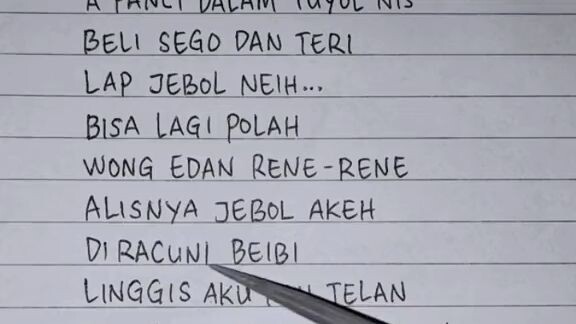 DALAM
BELI SEGO DAN TERI
LAP JEBOL NEIH...
BISA LAGI POLAH
WONG EDAN RENE-RENE
ALISNYA JEBOL AKEH
DIRACUNI BEIBI
LINGGIS AKU TELAN